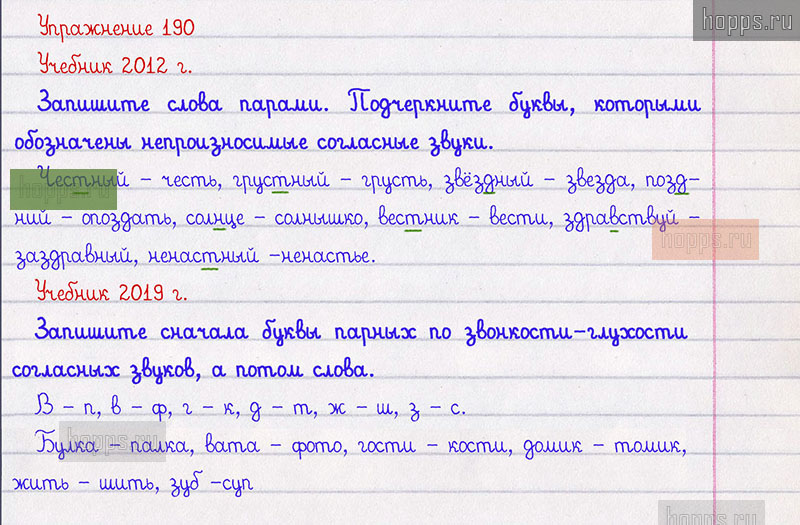 hopps.ru
Упражнение 190
Учебник 2012 г.
Запишите слова парами. Подчеркните буквы, которыми
обозначены непроизносимые согласные звуки.
Честный – честь, грустный – грусть, звёздный – звезда, позд-
hopps.ru
ний – опоздать, солнце – солнышко, вестник – вести, здравствуй –
hopps.ru
заздравный, ненастный –ненастье.
Учебник 2019 г.
Запишите сначала буквы парных по звонкости–глухости
согласных звуков, а потом слова.
В – п, в – ф, г – к, д – т, ж – ш, з – с.
Булка – палка, вата – фото, гости – кости, домик – томик,
hopps.ru
жить – шить, зуб –суп
hopps.ru